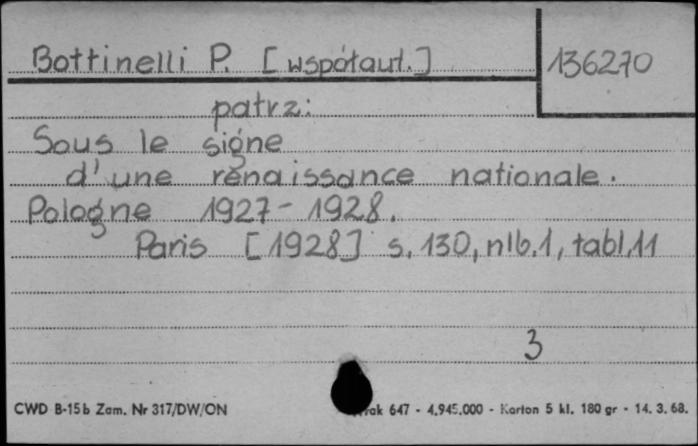 Bottinelli P. [współaut.]
136270
patrz:
Sous le signe
d'une renaissance nationale.
Pologne 1927-1928.
Paris [1928] s. 130, nlb. 1, tabl. 11
3
CWD B-15b Zam. Nr 317/DW/ON
647 - 4.945.000 - Karton 5 kl. 180 gr - 14. 3. 68.